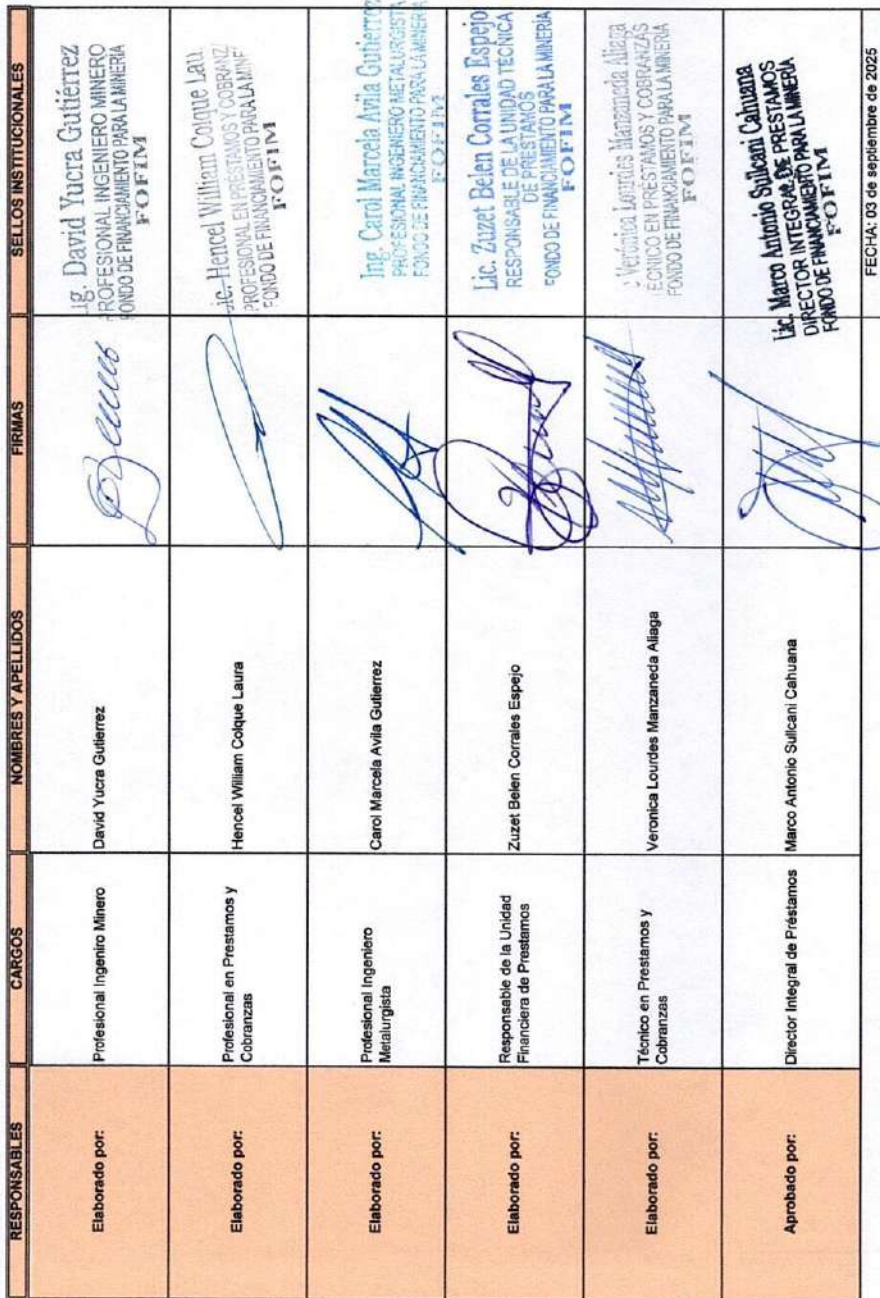 RESPONSABLES CARGOS NOMBRES Y APELLIDOS FIRMAS SELLOS INSTITUCIONALES
Elaborado por:
Profesional Ingeniro Minero
David Yucra Gutierrez
g. David Yucra Gutiérrez
PROFESIONAL INGENIERO MINERO
FONDO DE FINANCIAMIENTO PARA LA MINERIA
FOFIM
Elaborado por:
Profesional en Prestamos y
Cobranzas
Hencel William Colque Laura
ic. Hencel William Colque Lau
PROFESIONAL EN PRESTAMOS Y COBRANZ
FONDO DE FINANCIAMIENTO PARA LA MINE
FOFIM
Elaborado por:
Profesional Ingeniero
Metalurgista
Carol Marcela Avila Gutierrez
Ing. Carol Marcela Avila Gutierrez
PROFESIONAL INGENIERO METALURGISTA
FONDO DE FINANCIAMIENTO PARA LA MINERIA
FOFIM
Elaborado por:
Responsable de la Unidad
Financiera de Prestamos
Zuzet Belen Corrales Espejo
Lic. Zuzet Belen Corrales Espejo
RESPONSABLE DE LA UNIDAD TÉCNICA
DE PRESTAMOS
FONDO DE FINANCIAMIENTO PARA LA MINERIA
FOFIM
Elaborado por:
Técnico en Prestamos y
Cobranzas
Veronica Lourdes Manzaneda Aliaga
Verónica Lourdes Manzaneda Aliaga
ÉCNICO EN PRÉSTAMOS Y COBRANZAS
FONDO DE FINANCIAMIENTO PARA LA MINERIA
FOFIM
Aprobado por:
Director Integral de Préstamos
Marco Antonio Sullcani Cahuana
Lic. Marco Antonio Sullcani Cahuana
DIRECTOR INTEGRAL DE PRESTAMOS
FONDO DE FINANCIAMIENTO PARA LA MINERIA
FOFIM
FECHA: 03 de septiembre de 2025